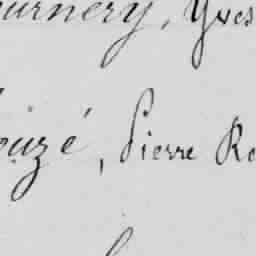 urnery, Yves
ouzé, Pierre Ro